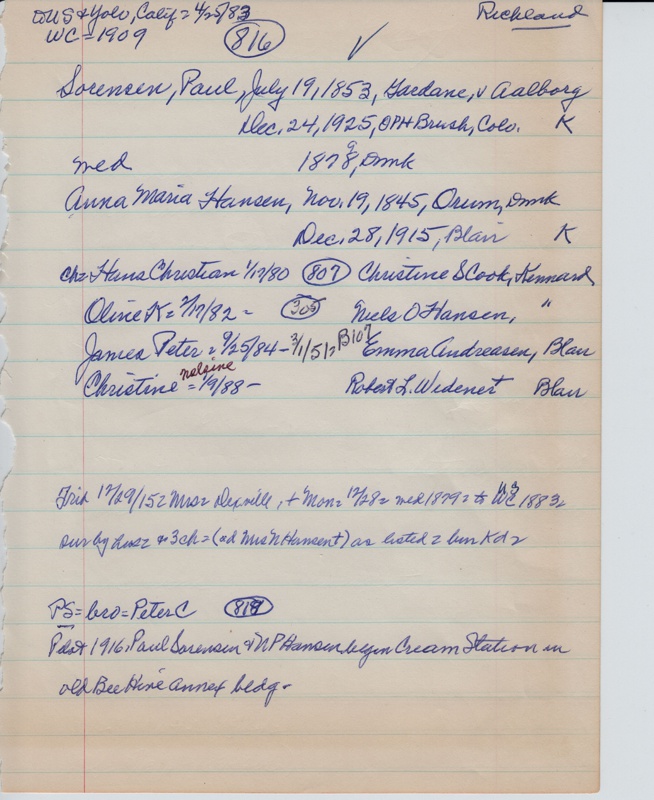 DUS & Yolo, Calif = 4/25/83 Richland
WC = 1909 816 ✓
Sorensen, Paul, July 19, 1853, Gardane, v Aalborg
Dec. 24, 1925, OPH Brush, Colo. K
med 1878, 9 Dmk
Anna Maria Hansen, Nov. 19, 1845, Orum, Dmk
Dec. 28, 1915, Blair K
ch = Hans Christian 1/17/80 807 Christine S Cook, Kennard
Oline K = 2/17/82 = 305 Niels O Hansen, "
James Peter = 9/25/84 - 3/1/51 = B107 Emma Andreasen, Blair
nelsine
Christine = 1/9/88 - Robert L. Widener Blair
Trib 12/29/15 = Mrs = , + Mon = 12/28 = med 1879 = to WC 1883,
sur by & 3 ch = (& d Mrs N Hansen +) as listed = bur Kd =
PS = bro = Peter C 818
Pilot 1916, Paul Sorensen & NP Hansen begin Cream Station in
old Bee Hive annex bldg.